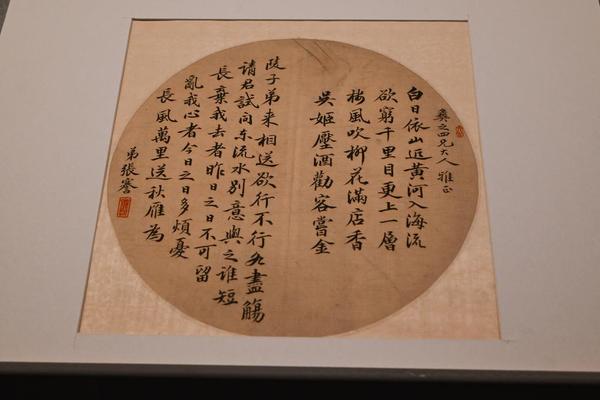 之四兄大人 雅正
白日依山近黄河入海流
欲窮千里目更上一層
樓風吹柳花滿店香
吳姬壓酒勸客嘗金
陵子弟来相送欲行不行各盡觴
请君試问东流水别意與之谁短
長棄我去者昨日之日不可留
亂我心者今日之日多煩憂
長風萬里送秋雁為
弟張謇